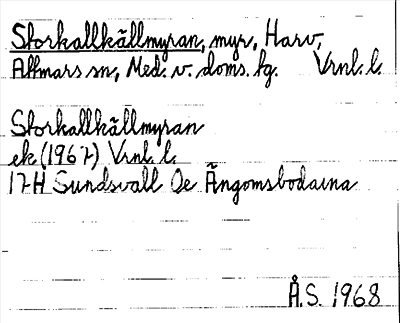 Storkallkällmyran, myr, Harv,
Attmars sn, Med. v. doms. hg. Vrnl. l.
Storkallkällmyran
ek (1967) Vrnl. l.
17H Sundsvall Oe Ängomsbodarna
Å.S. 1968